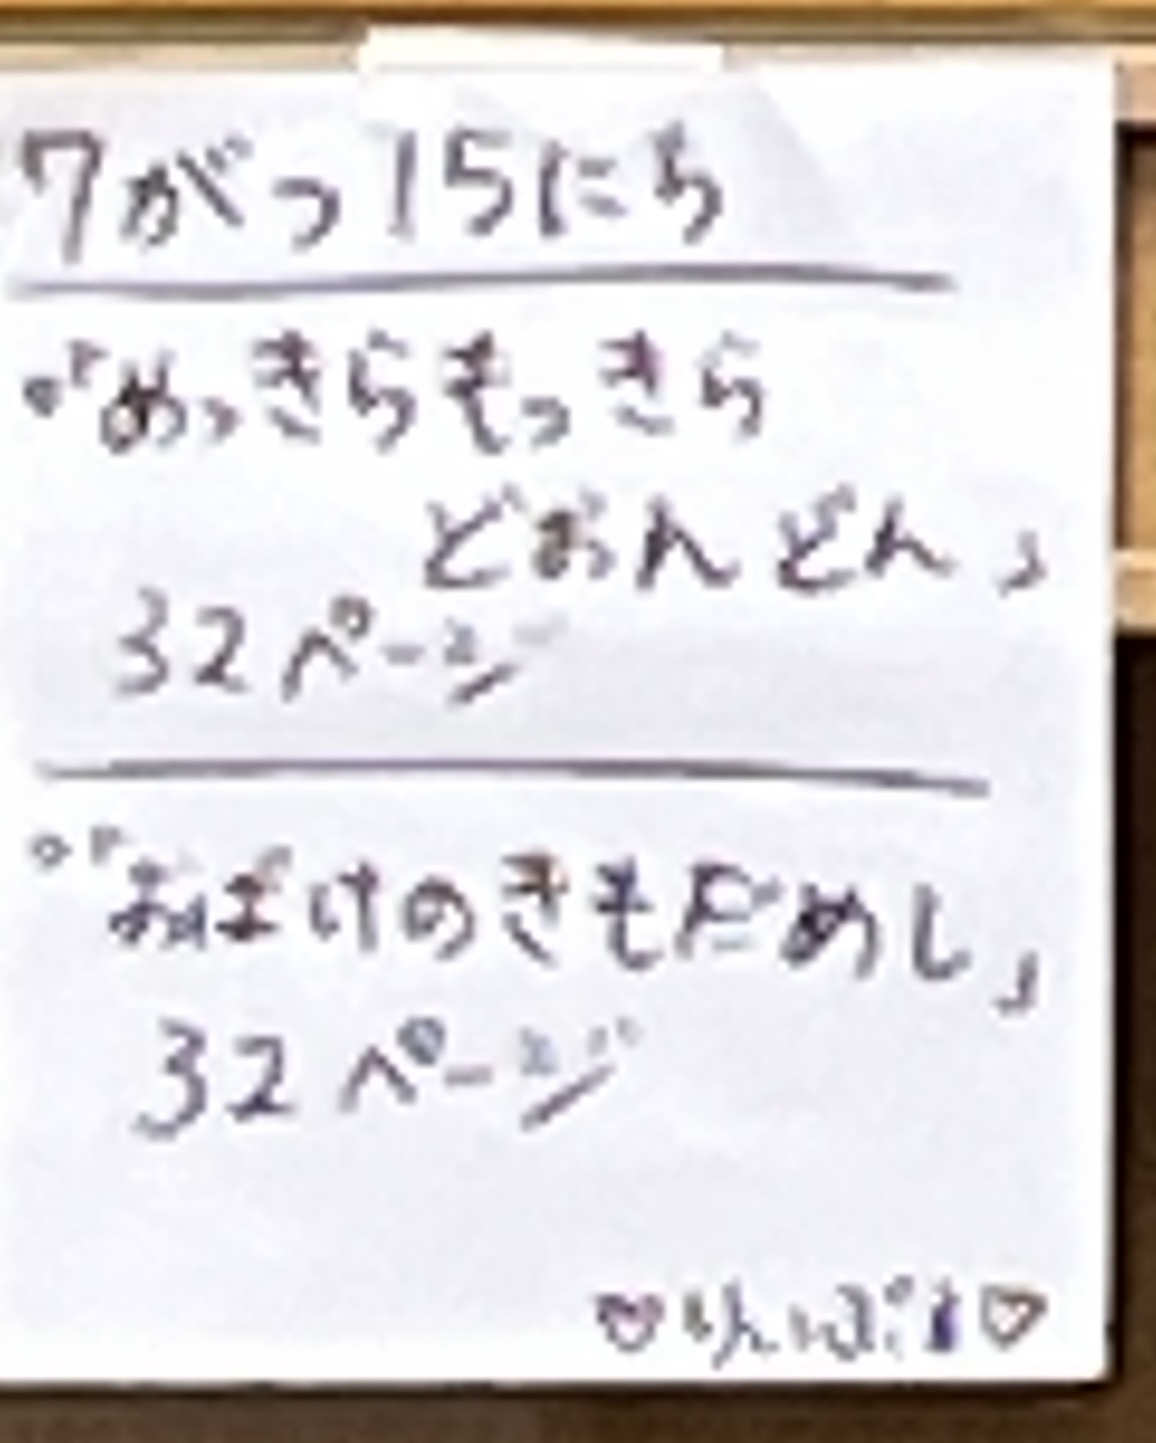 7がつ15にち
。「めっきらもっきら
どおんどん」
32ページ
。「おばけのきもだめし」
32ページ